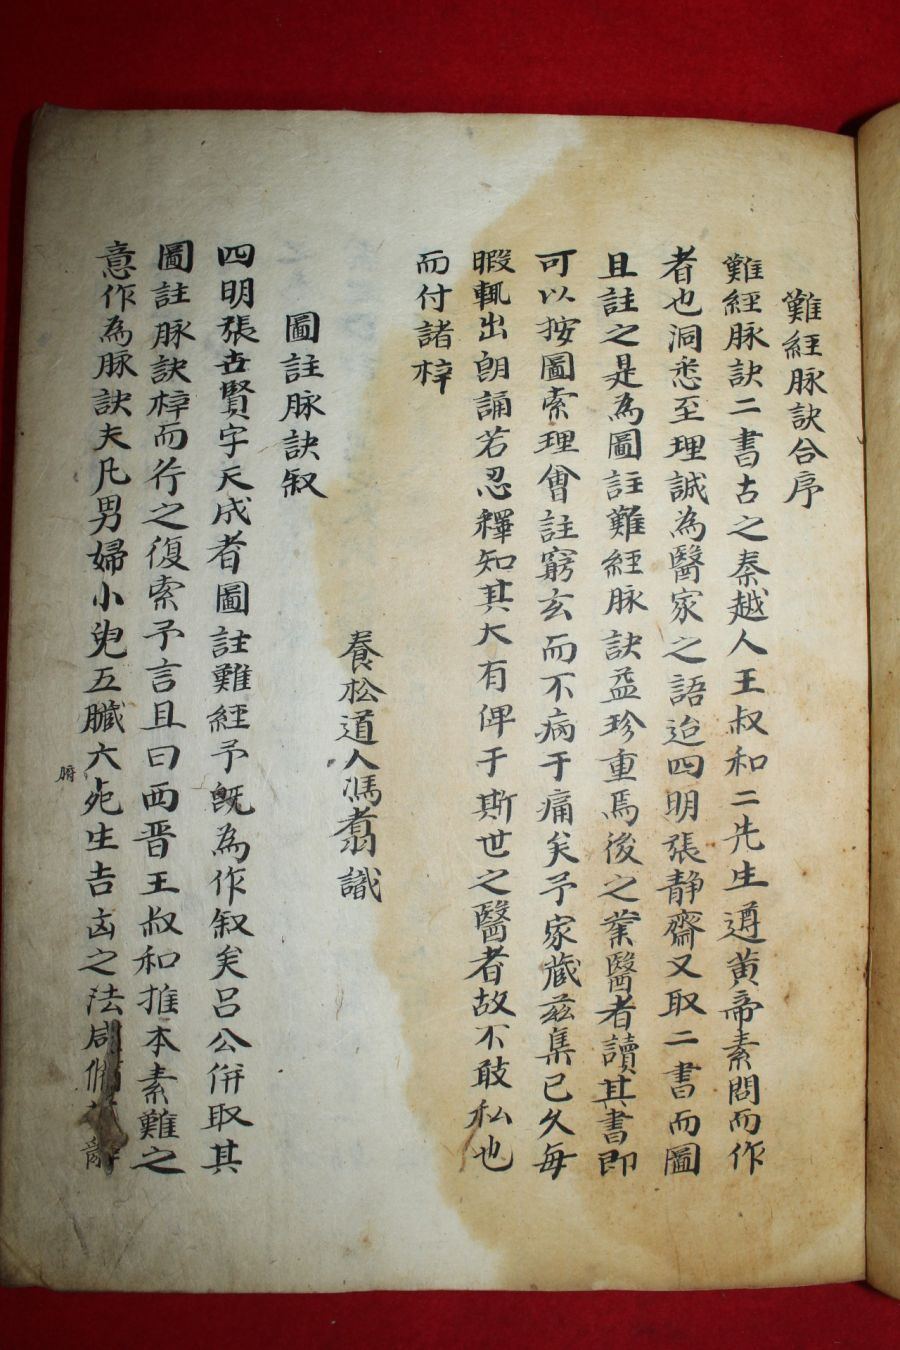 難經脉訣合序
難經脉訣二書古之秦越人王叔和二先生遵黃帝素問而作
者也洞悉至理誠為醫家之語迨四明張靜齋又取二書而圖
且註之是為圖註難經脉訣益珍重焉後之業醫者讀其書即
可以按圖索理會註窮玄而不病于痛矣予家藏茲集已久每
暇輒出朗誦若忍釋知其大有俾于斯世之醫者故不敢私也
而付諸梓
養松道人馮煮識
圖註脉訣叙
四明張世賢字天成者圖註難經予旣為作叙矣吕公併取其
圖註脉訣梓而行之復索予言且曰西晋王叔和推本素難之
意作為脉訣夫凡男婦小兒五臟六死生吉凶之法咸備其辭
腑